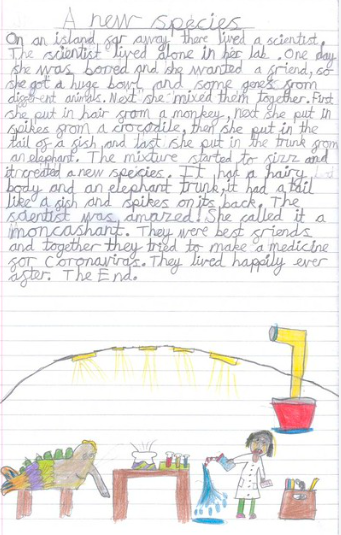 A new species
On an island far away there lived a scientist.
The scientist lived alone in her lab. One day
she was bored and she wanted a friend, so
she got a huge bowl and some genes from
different animals. Next she mixed them together. First
she put in hair from a monkey, next she put in
spikes from a crocodile, then she put in the
tail of a fish and last she put in the trunk from
an elephant. The mixture started to sizz and
it created a new speicies. It had a hairy
body and an elephant trunk, it had a tail
like a fish and spikes on its back. The
scientist was amazed! She called it a
moncashant. They were best friends
and together they tried to make a medicine
for Coronaviras. They lived happily ever
after. The End.